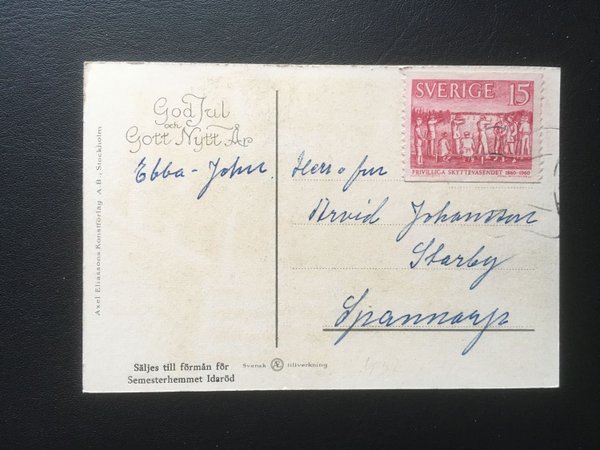 God Jul
och
Gott Nytt År
Ebba-John.
SVERIGE 15
FRIVILLIGA SKYTTEVÄSENDET 1860-1960
Herr o fru
Arvid Johansson
Starby
Spannarp
Axel Eliassons Konstförlag A.B., Stockholm
Säljes till förmån för
Semesterhemmet Idaröd
Svensk Æ tillverkning